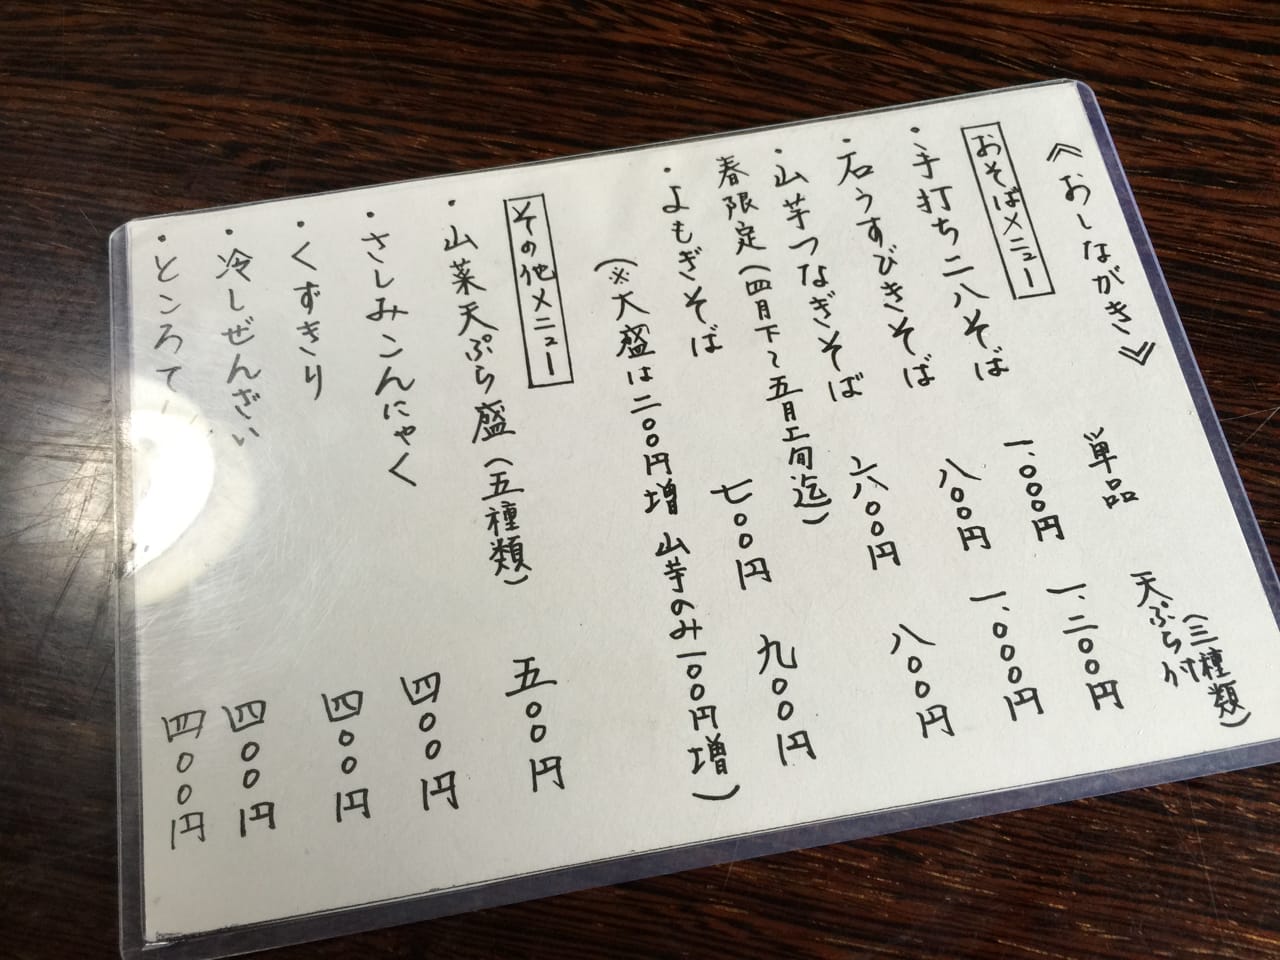 《おしながき》
単品
天ぷら付
(三種類)
おそばメニュー
・手打ち二八そば 一、〇〇〇円 一、二〇〇円
・石うすびきそば 八〇〇円 一、〇〇〇円
・山芋つなぎそば 六〇〇円 八〇〇円
春限定(四月下〜五月上旬迄)
・よもぎそば 七〇〇円 九〇〇円
(※大盛は二〇〇円増 山芋のみ一〇〇円増)
その他メニュー
・山菜天ぷら盛(五種類) 五〇〇円
・さしみこんにゃく 四〇〇円
・くずきり 四〇〇円
・冷しぜんざい 四〇〇円
・ところてん 四〇〇円